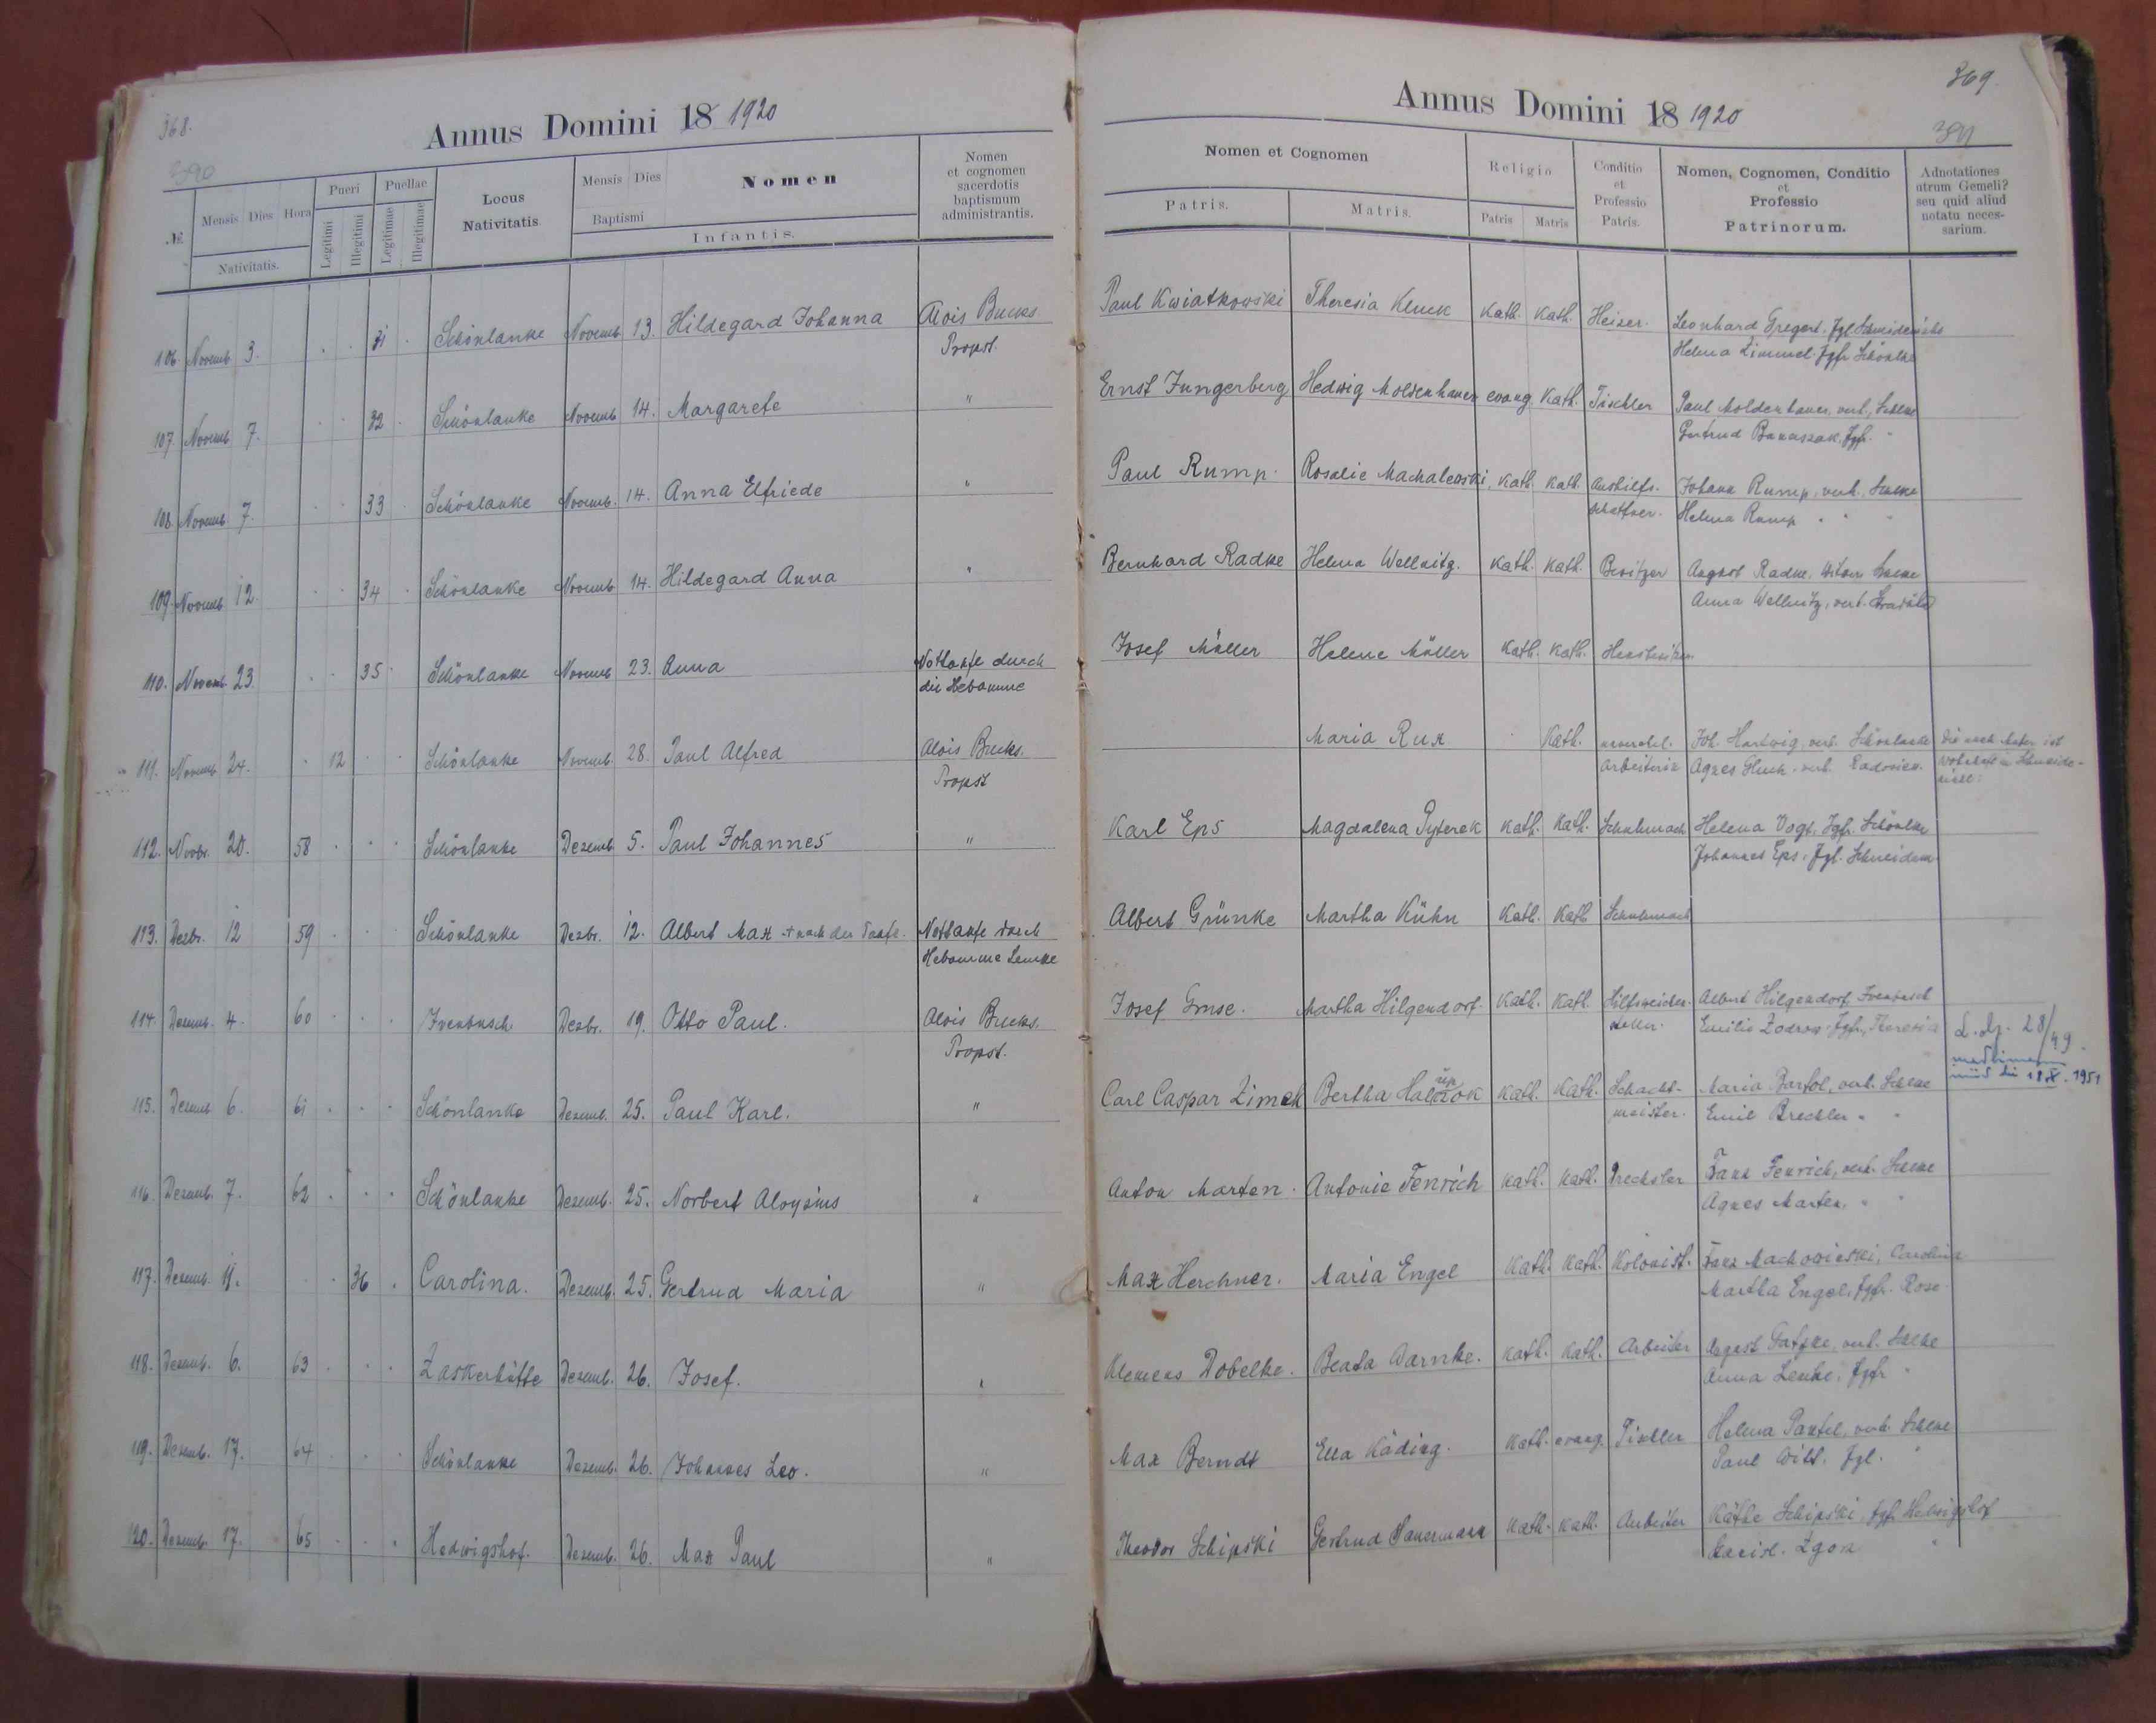 368.
Annus Domini 18 1920
390
№
Mensis Dies Hora
Nativitatis.
Pueri
Legitimi
Illegitimi
Puellae
Legitimae
Illegitimae
Locus
Nativitatis
Mensis Dies
Baptismi
Nomen
Infantis.
Nomen
et cognomen
sacerdotis
baptismum
administrantis.
106. Novemb. 3. 31 Schönlanke Novemb 13. Hildegard Johanna Alois Bucks
Propst.
107. Novemb 7. 32 Schönlanke Novemb 14. Margarete "
108. Novemb 7. 33 Schönlanke Novemb. 14. Anna Elfriede "
109. Novemb 12. 34 Schönlanke Novemb 14. Hildegard Anna "
110. Novemb. 23. 35 Schönlanke Novemb 23. Anna Nottaufe durch
die Hebamme
111. Novemb 24. 12 Schönlanke Novemb. 28. Paul Alfred Alois Bucks.
Propst
112. Novbr. 20. 58 Schönlanke Dezemb 5. Paul Johannes "
113. Dezbr. 12 59 Schönlanke Dezbr. 12. Albert Max + nach der Taufe. Nottaufe durch
Hebamme Lemke
114. Dezemb. 4. 60 Ivenbusch Dezbr. 19. Otto Paul. Alois Bucks.
Propst.
115. Dezemb 6. 61 Schönlanke Dezemb. 25. Paul Karl. "
116. Dezemb. 7. 62 Schönlanke Dezemb. 25. Norbert Aloysius "
117. Dezemb. 11. 36 Carolina. Dezemb. 25. Gertrud Maria "
118. Dezemb. 6. 63 Zaskerhütte Dezemb. 26. Josef. "
119. Dezemb. 17. 64 Schönlanke Dezemb. 26. Johannes Leo. "
120. Dezemb. 17. 65 Hedwigshof. Dezemb. 26. Max Paul "
369.
Annus Domini 18 1920
391
Nomen et Cognomen
Patris. Matris.
Religio
Patris Matris
Conditio
et
Professio
Patris.
Nomen, Cognomen, Conditio
et
Professio
Patrinorum.
Adnotationes
utrum Gemeli?
seu quid aliud
notatu neces-
sarium.
Paul Kwiatkowski Theresia Kluck Kath. Kath. Heizer. Leonhard Gregert. Jgl.
Helena Zimmel. Jgfr. Schönlke
Ernst Jungerberg Hedwig Moldenhauer evang. Kath. Tischler Paul Moldenhauer, verh., Schlke
Gertrud Banaszak, Jgfr. "
Paul Rump. Rosalie Machalewski, Kath. Kath. Aushilfs- Johann Rump, verh., Schlke
schaffner. Helena Rump " "
Bernhard Radke Helena Wellnitz. Kath. Kath. Besitzer August Radke, Schlke
Anna Wellnitz, verh.
Josef Müller Helene Müller Kath. Kath.
Maria Rux Kath. unverehel. Joh. Hartwig, verh. Schönlanke
Arbeiterin Agnes verh. Radosiew.
Karl Eps Magdalena Kath. Kath. Schuhmach Helena Vogt, Jgfr. Schönlke
Johannes Eps, Jgl. Schneidem.
Albert Grünke Martha Kühn Kath. Kath Schuhmach
Josef Martha Hilgendorf. Kath. Kath. Hilfsweichen- Albert Hilgendorf, Ivenbusch
steller. Emilie Jgfr, Theresia
L. dz. 28/49.
Carl Caspar Zimek Bertha Kath. Kath. Schacht- Maria Bartol, verh. Schlke 18.X.1951
meister. Emil Brechler " "
Anton Marten. Antonie Fenrich Kath. Kath. Drechsler Franz Fenrich, verh. Schlke
Agnes Marten, " "
Max Herchner. Maria Engel Kath. Kath. Kolonist. Franz Carolina
Martha Engel, Jgfr. Rose
Klemens Dobelke. Beata Warnke. Kath. Kath. Arbeiter August Gatzke, verh. Schlke
Anna Lenke, Jgfr. "
Max Berndt Ella Käding. Kath. evang. Tischler Helena Pantel, verh. Schlke
Paul Jgl. "
Theodor Schipski Gertrud Sauermann Kath. Kath. Arbeiter Käthe Schipski, Jgfr. Hedwigshof
"